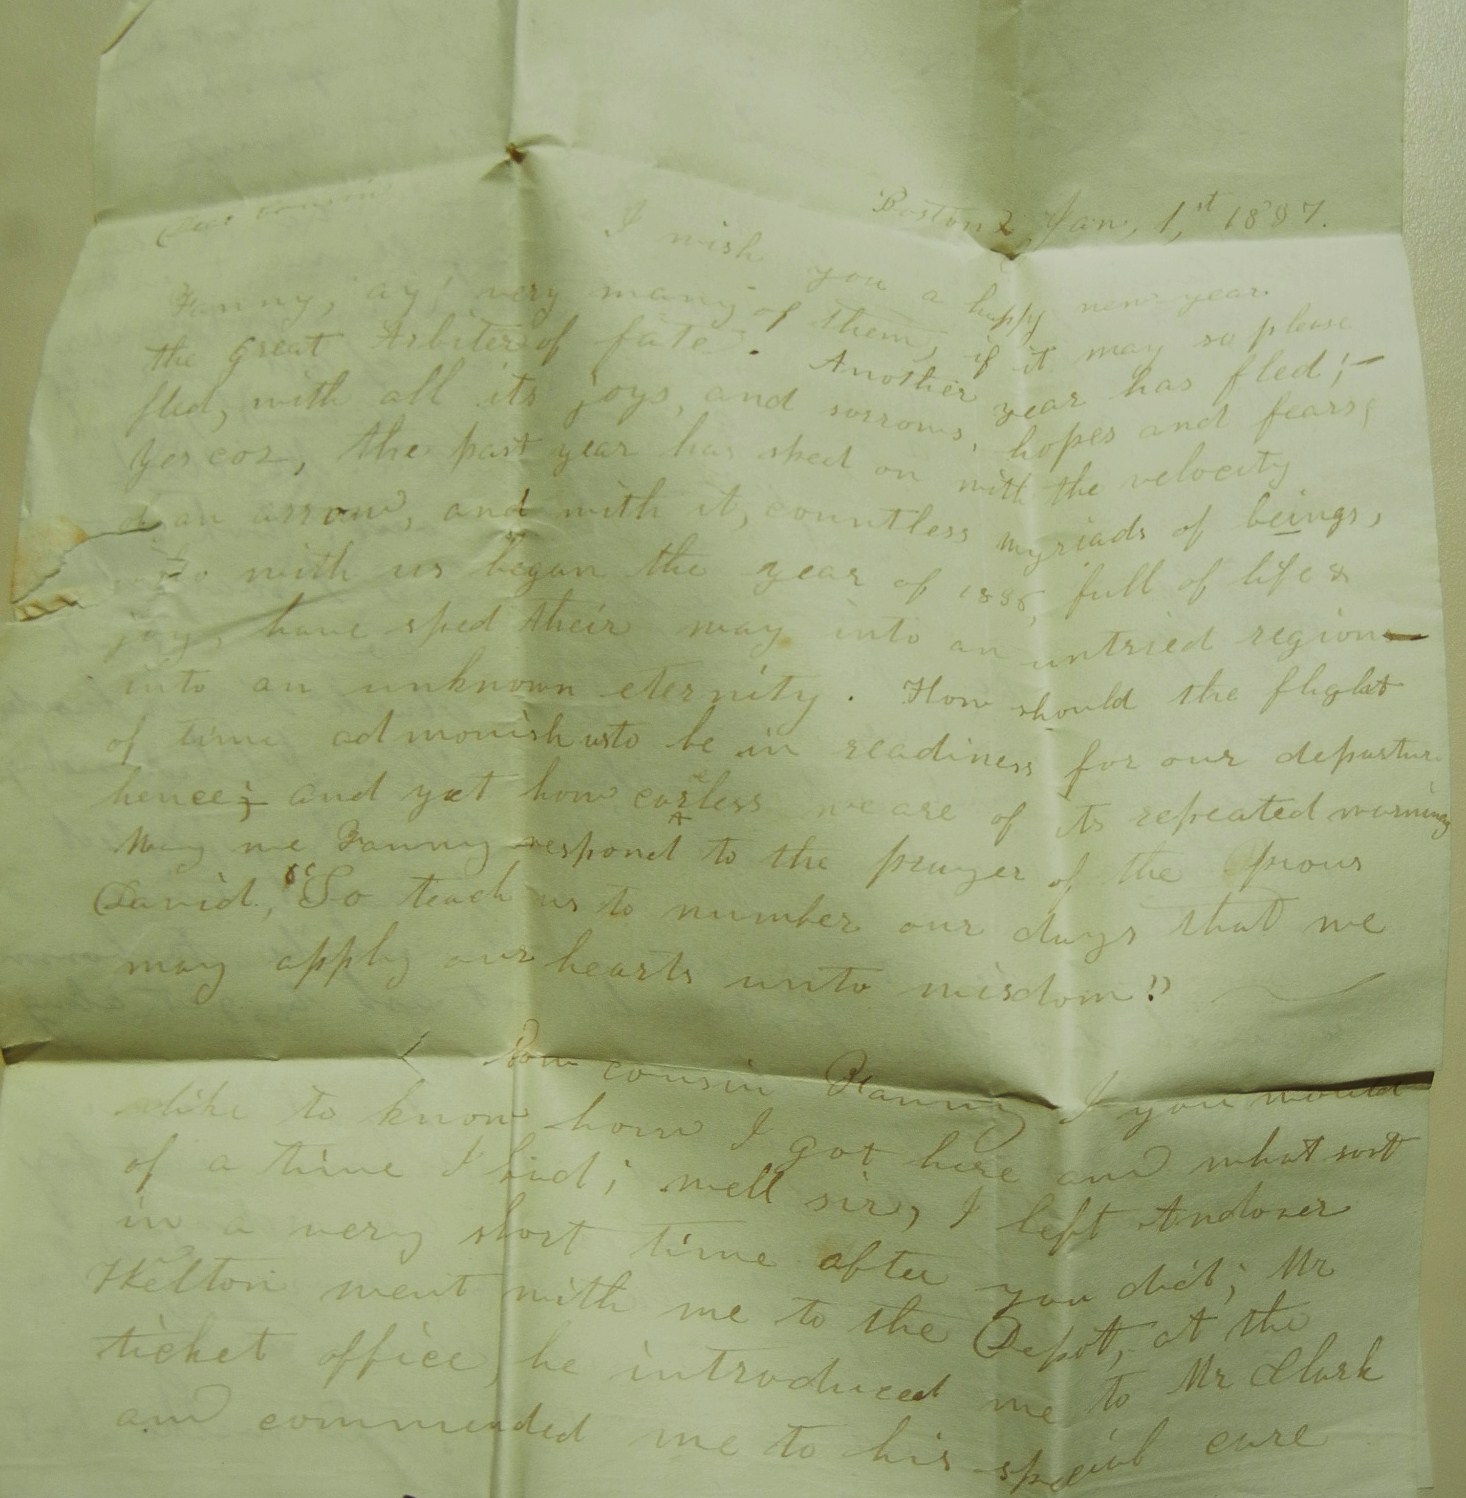 Boston Jan, 1,st 1837.
Dear Cousin
I wish you a happy new year
Fanny, ay; very many of them, if it may so please
the great Arbiter of fate. Another year has fled;—
fled, with all its joys, and sorrows, hopes and fears;
Yes coz, the past year has sped on with the velocity
of an arrow, and with it, countless myriads of beings,
who with us began the year of 1836, full of life &
joy, have sped their way into an untried region—
into an unknown eternity. How should the flight
of time admonish us to be in readiness for our departure
hence; and yet how careless we are of its repeated warning
May we Fanny respond to the prayer of the pious
David, "So teach us to number our days that we
may apply our hearts unto wisdom"
Now cousin Fanny I you would
like to know how I got here and what sort
of a time I had; well sir, I left Andover
in a very short time after you did; Mr
Skelton went with me to the Depot, at the
ticket office, he introduced me to Mr Clark
and commended me to his special care